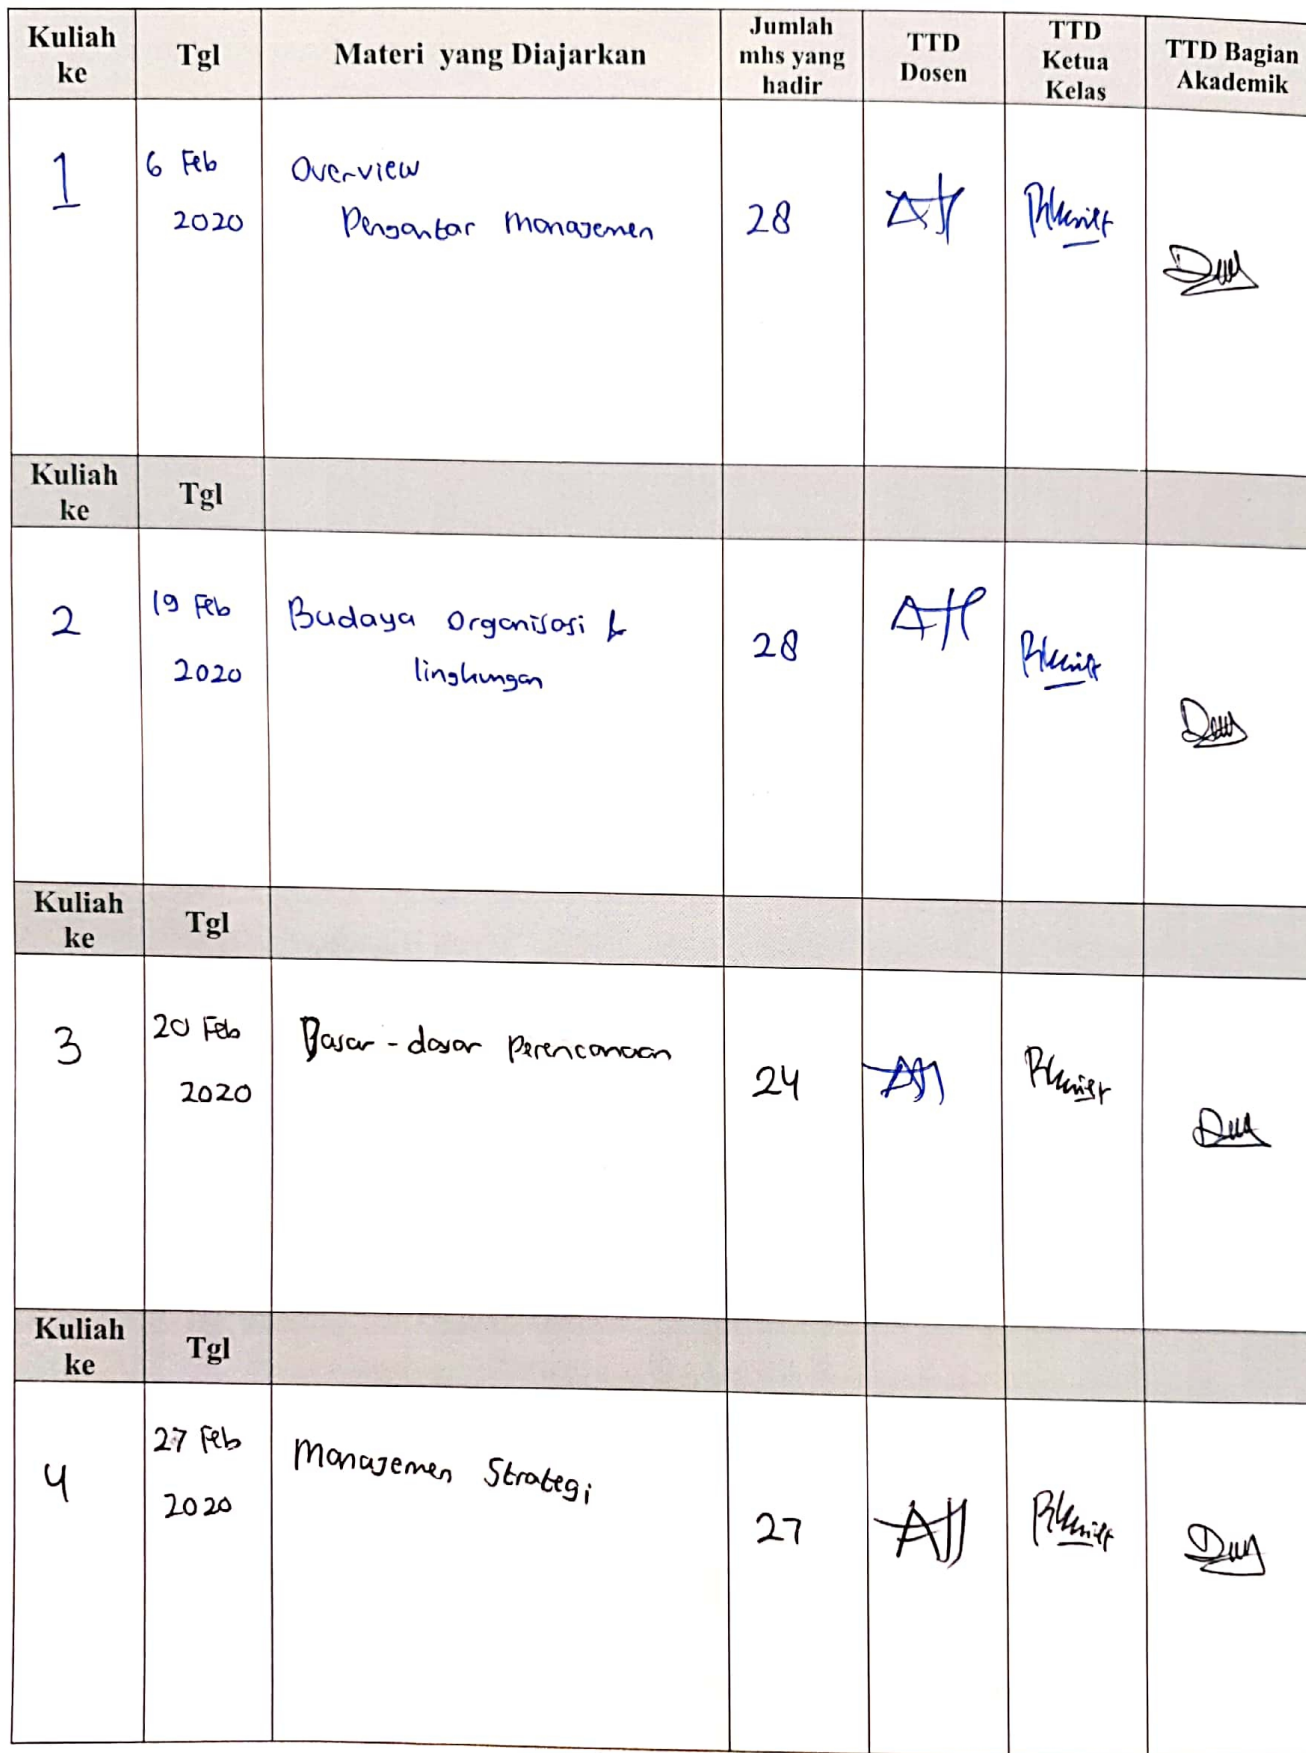 Kuliah ke Tgl Materi yang Diajarkan Jumlah mhs yang hadir TTD Dosen TTD Ketua Kelas TTD Bagian Akademik
1 6 Feb 2020 Overview
Pengantar Manajemen 28
Kuliah ke Tgl
2 19 Feb 2020 Budaya Organisasi &
lingkungan 28
Kuliah ke Tgl
3 20 Feb 2020 Dasar - dasar Perencanaan 24
Kuliah ke Tgl
4 27 Feb 2020 Manajemen Strategi 27